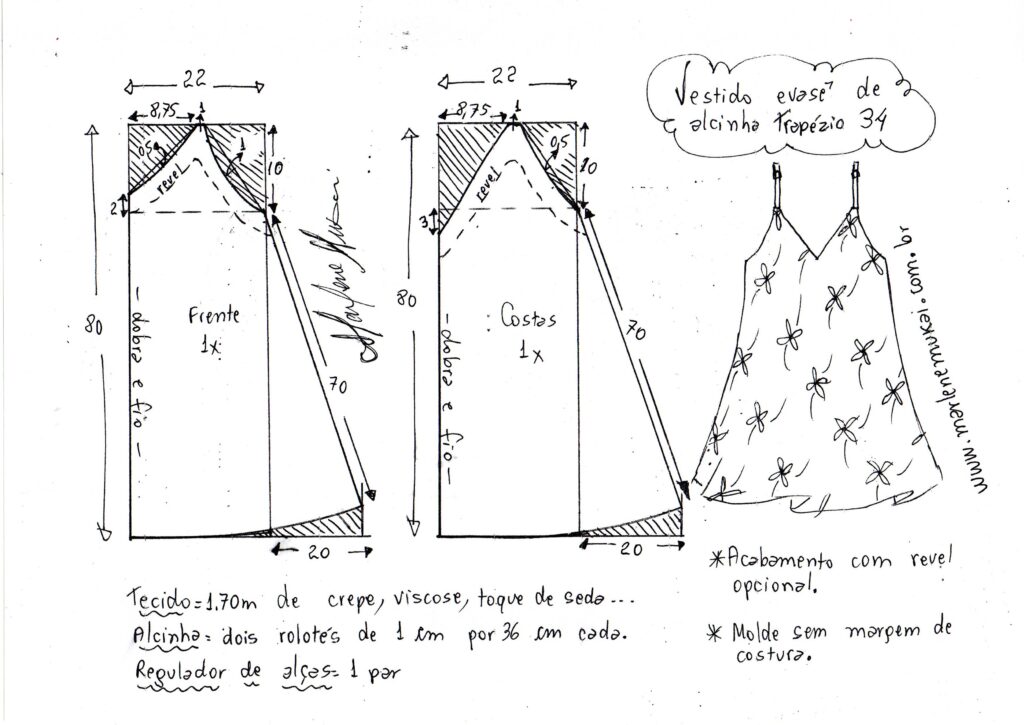 22
22
Vestido evasê de
alcinha trapézio 34
8,75
1
8,75
1
0,5
1
0,5
10
10
revel
revel
2
3
Marlene Mukai
80
80
Frente
1x
Costas
1x
- dobra e fio -
- dobra e fio -
70
70
www.marlenemukai.com.br
20
20
*Acabamento com revel
opcional.
Tecido=1.70m de crepe, viscose, toque de seda...
Alcinha= dois rolotés de 1 cm por 36 cm cada.
Regulador de alças= 1 par
* Molde sem margem de
costura.